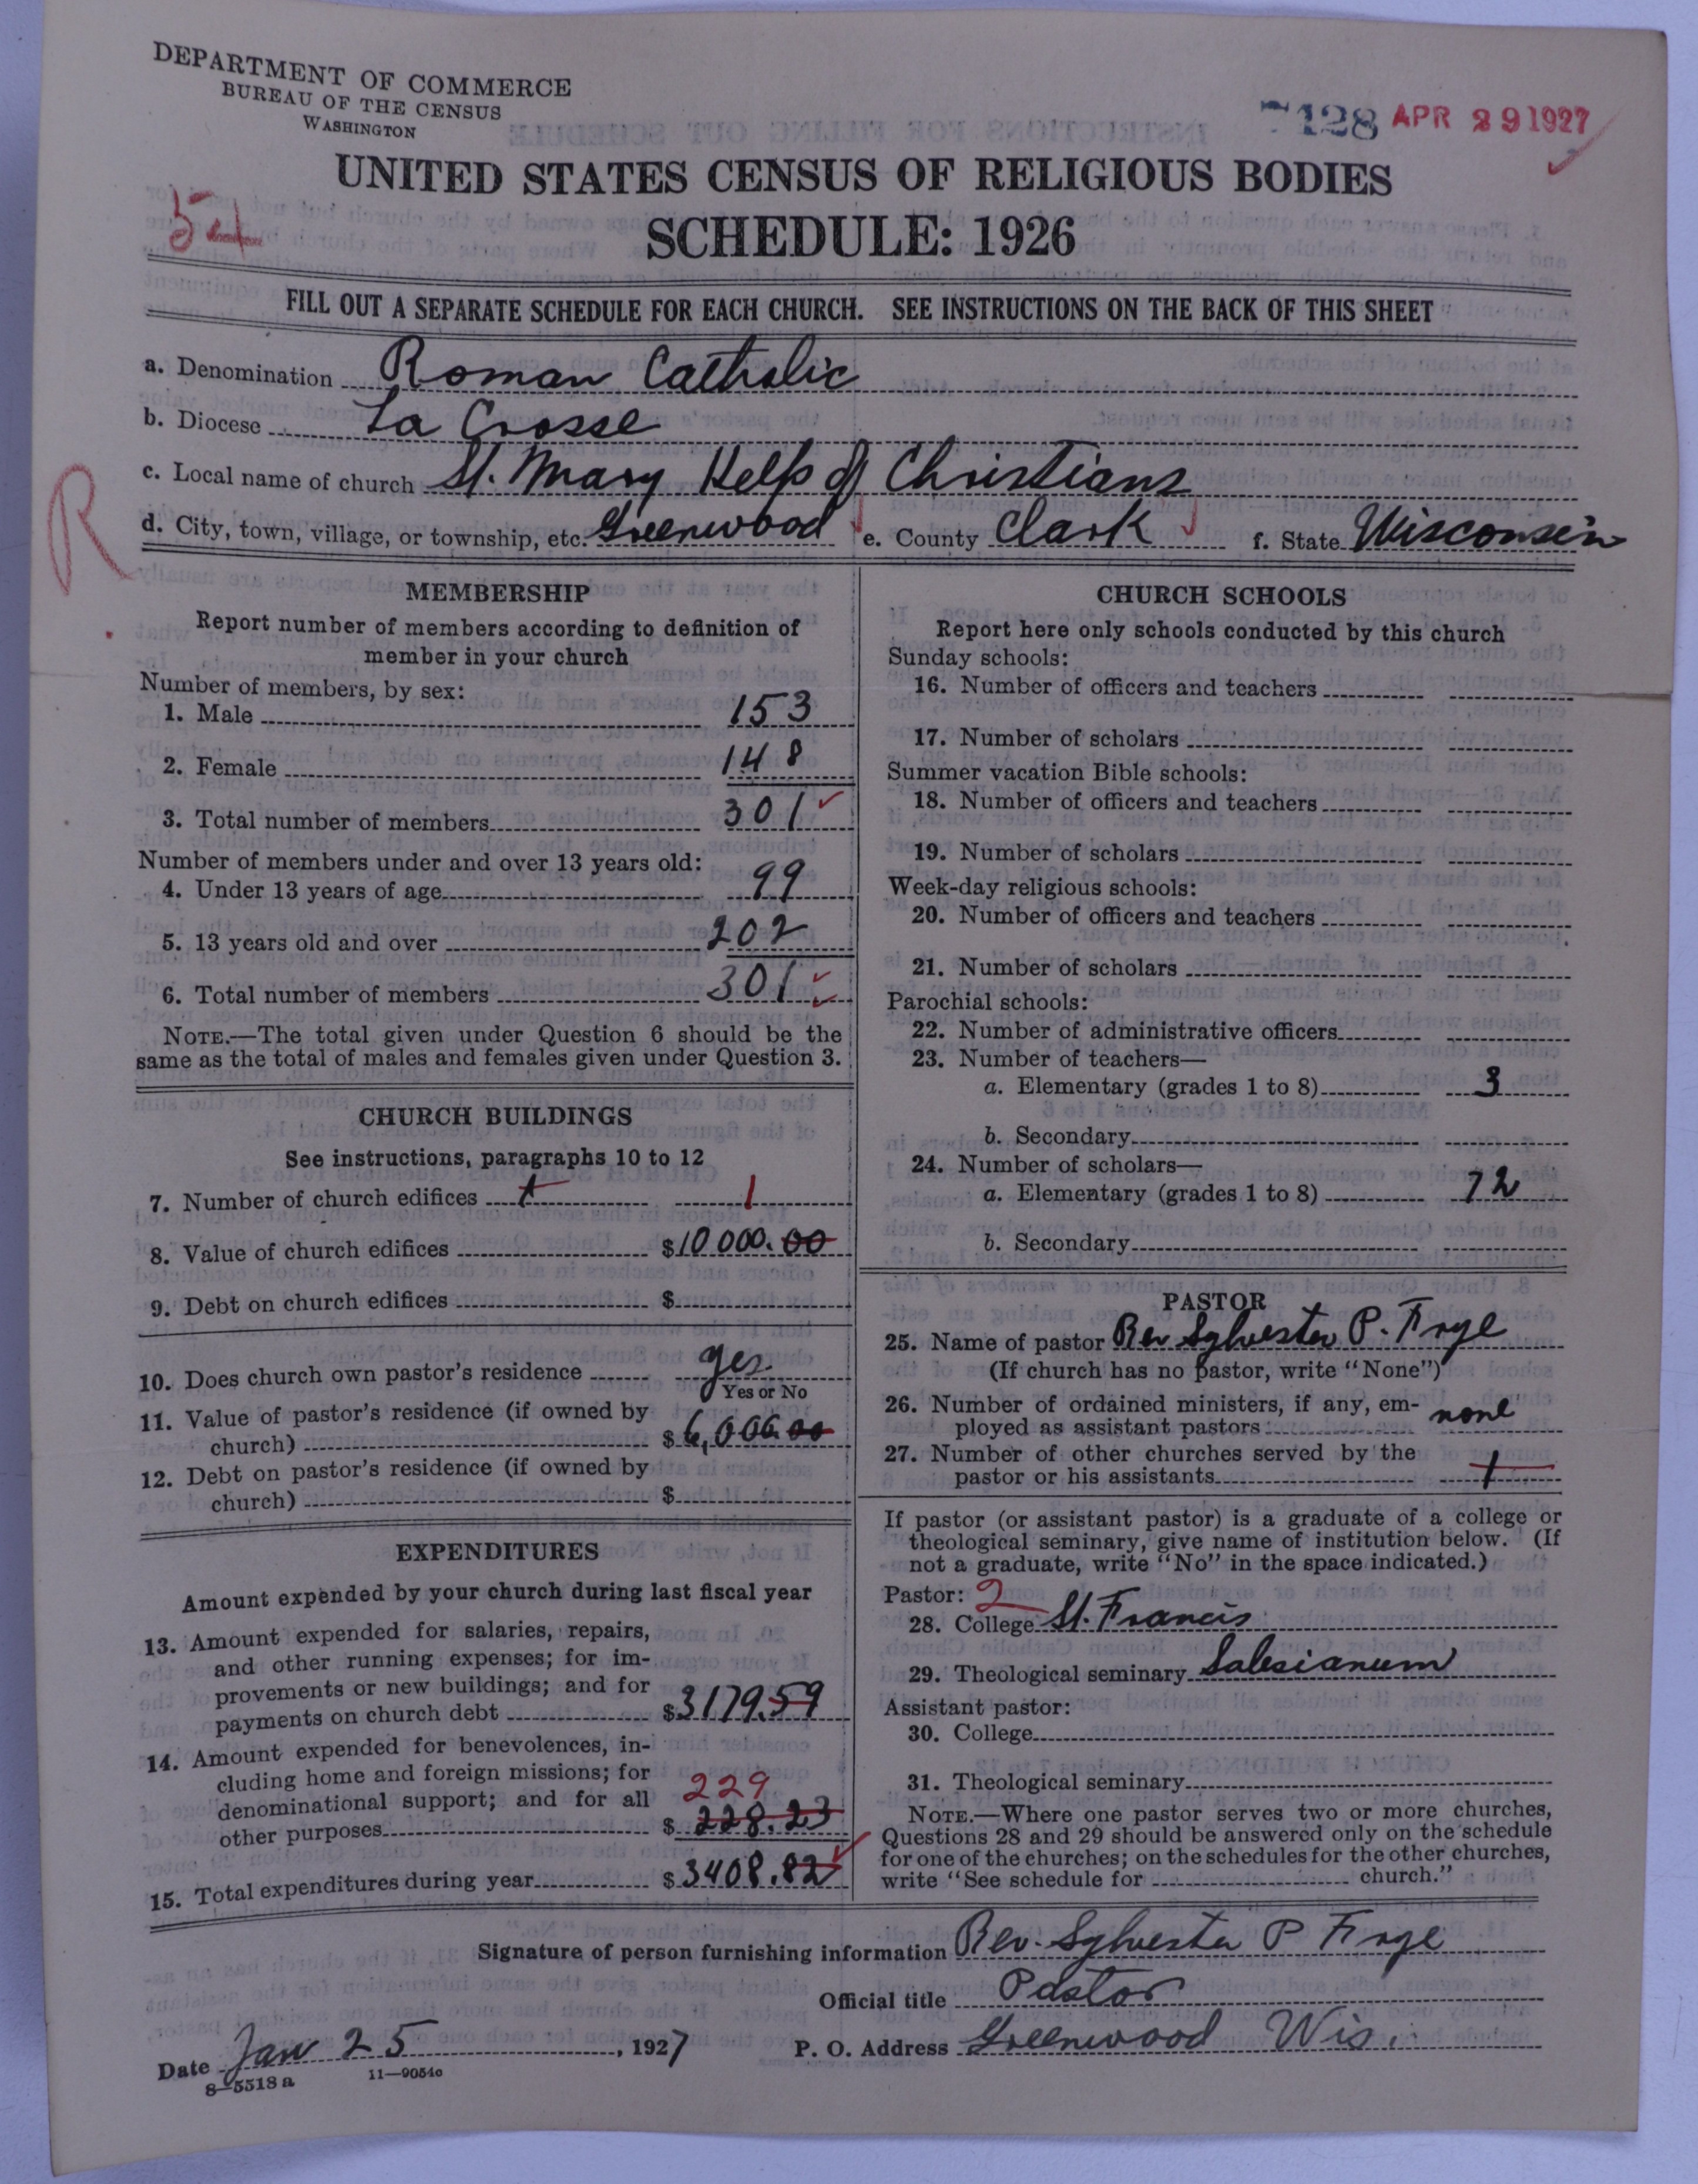 DEPARTMENT OF COMMERCE
BUREAU OF THE CENSUS
WASHINGTON
7428 APR 29 1927
UNITED STATES CENSUS OF RELIGIOUS BODIES
SCHEDULE: 1926
FILL OUT A SEPARATE SCHEDULE FOR EACH CHURCH. SEE INSTRUCTIONS ON THE BACK OF THIS SHEET
a. Denomination Roman Catholic
b. Diocese La Crosse
c. Local name of church St. Mary Help of Christians
R
d. City, town, village, or township, etc. Greenwood e. County Clark f. State Wisconsin
MEMBERSHIP
Report number of members according to definition of
member in your church
Number of members, by sex:
1. Male 153
2. Female 148
3. Total number of members 301
Number of members under and over 13 years old:
4. Under 13 years of age 99
5. 13 years old and over 202
6. Total number of members 301
NOTE.—The total given under Question 6 should be the
same as the total of males and females given under Question 3.
CHURCH BUILDINGS
See instructions, paragraphs 10 to 12
7. Number of church edifices 1 1
8. Value of church edifices $10 000.00
9. Debt on church edifices $
10. Does church own pastor's residence yes.
Yes or No
11. Value of pastor's residence (if owned by
church) $6,000.00
12. Debt on pastor's residence (if owned by
church) $
EXPENDITURES
Amount expended by your church during last fiscal year
13. Amount expended for salaries, repairs,
and other running expenses; for im-
provements or new buildings; and for
payments on church debt $3179.59
14. Amount expended for benevolences, in-
cluding home and foreign missions; for
denominational support; and for all 229
other purposes $228.23
15. Total expenditures during year $3408.82
CHURCH SCHOOLS
Report here only schools conducted by this church
Sunday schools:
16. Number of officers and teachers
17. Number of scholars
Summer vacation Bible schools:
18. Number of officers and teachers
19. Number of scholars
Week-day religious schools:
20. Number of officers and teachers
21. Number of scholars
Parochial schools:
22. Number of administrative officers
23. Number of teachers—
a. Elementary (grades 1 to 8) 3
b. Secondary
24. Number of scholars—
a. Elementary (grades 1 to 8) 72
b. Secondary
PASTOR
25. Name of pastor Rev Sylvester P. Frye
(If church has no pastor, write "None")
26. Number of ordained ministers, if any, em-
ployed as assistant pastors none
27. Number of other churches served by the
pastor or his assistants 1
If pastor (or assistant pastor) is a graduate of a college or
theological seminary, give name of institution below. (If
not a graduate, write "No" in the space indicated.)
Pastor: 2
28. College St. Francis
29. Theological seminary Salesianum
Assistant pastor:
30. College
31. Theological seminary
NOTE.—Where one pastor serves two or more churches,
Questions 28 and 29 should be answered only on the schedule
for one of the churches; on the schedules for the other churches,
write "See schedule for church."
Signature of person furnishing information Rev. Sylvester P Frye
Official title Pastor
Date Jan 25, 1927 P. O. Address Greenwood Wis.
8—5518 a 11—9054c